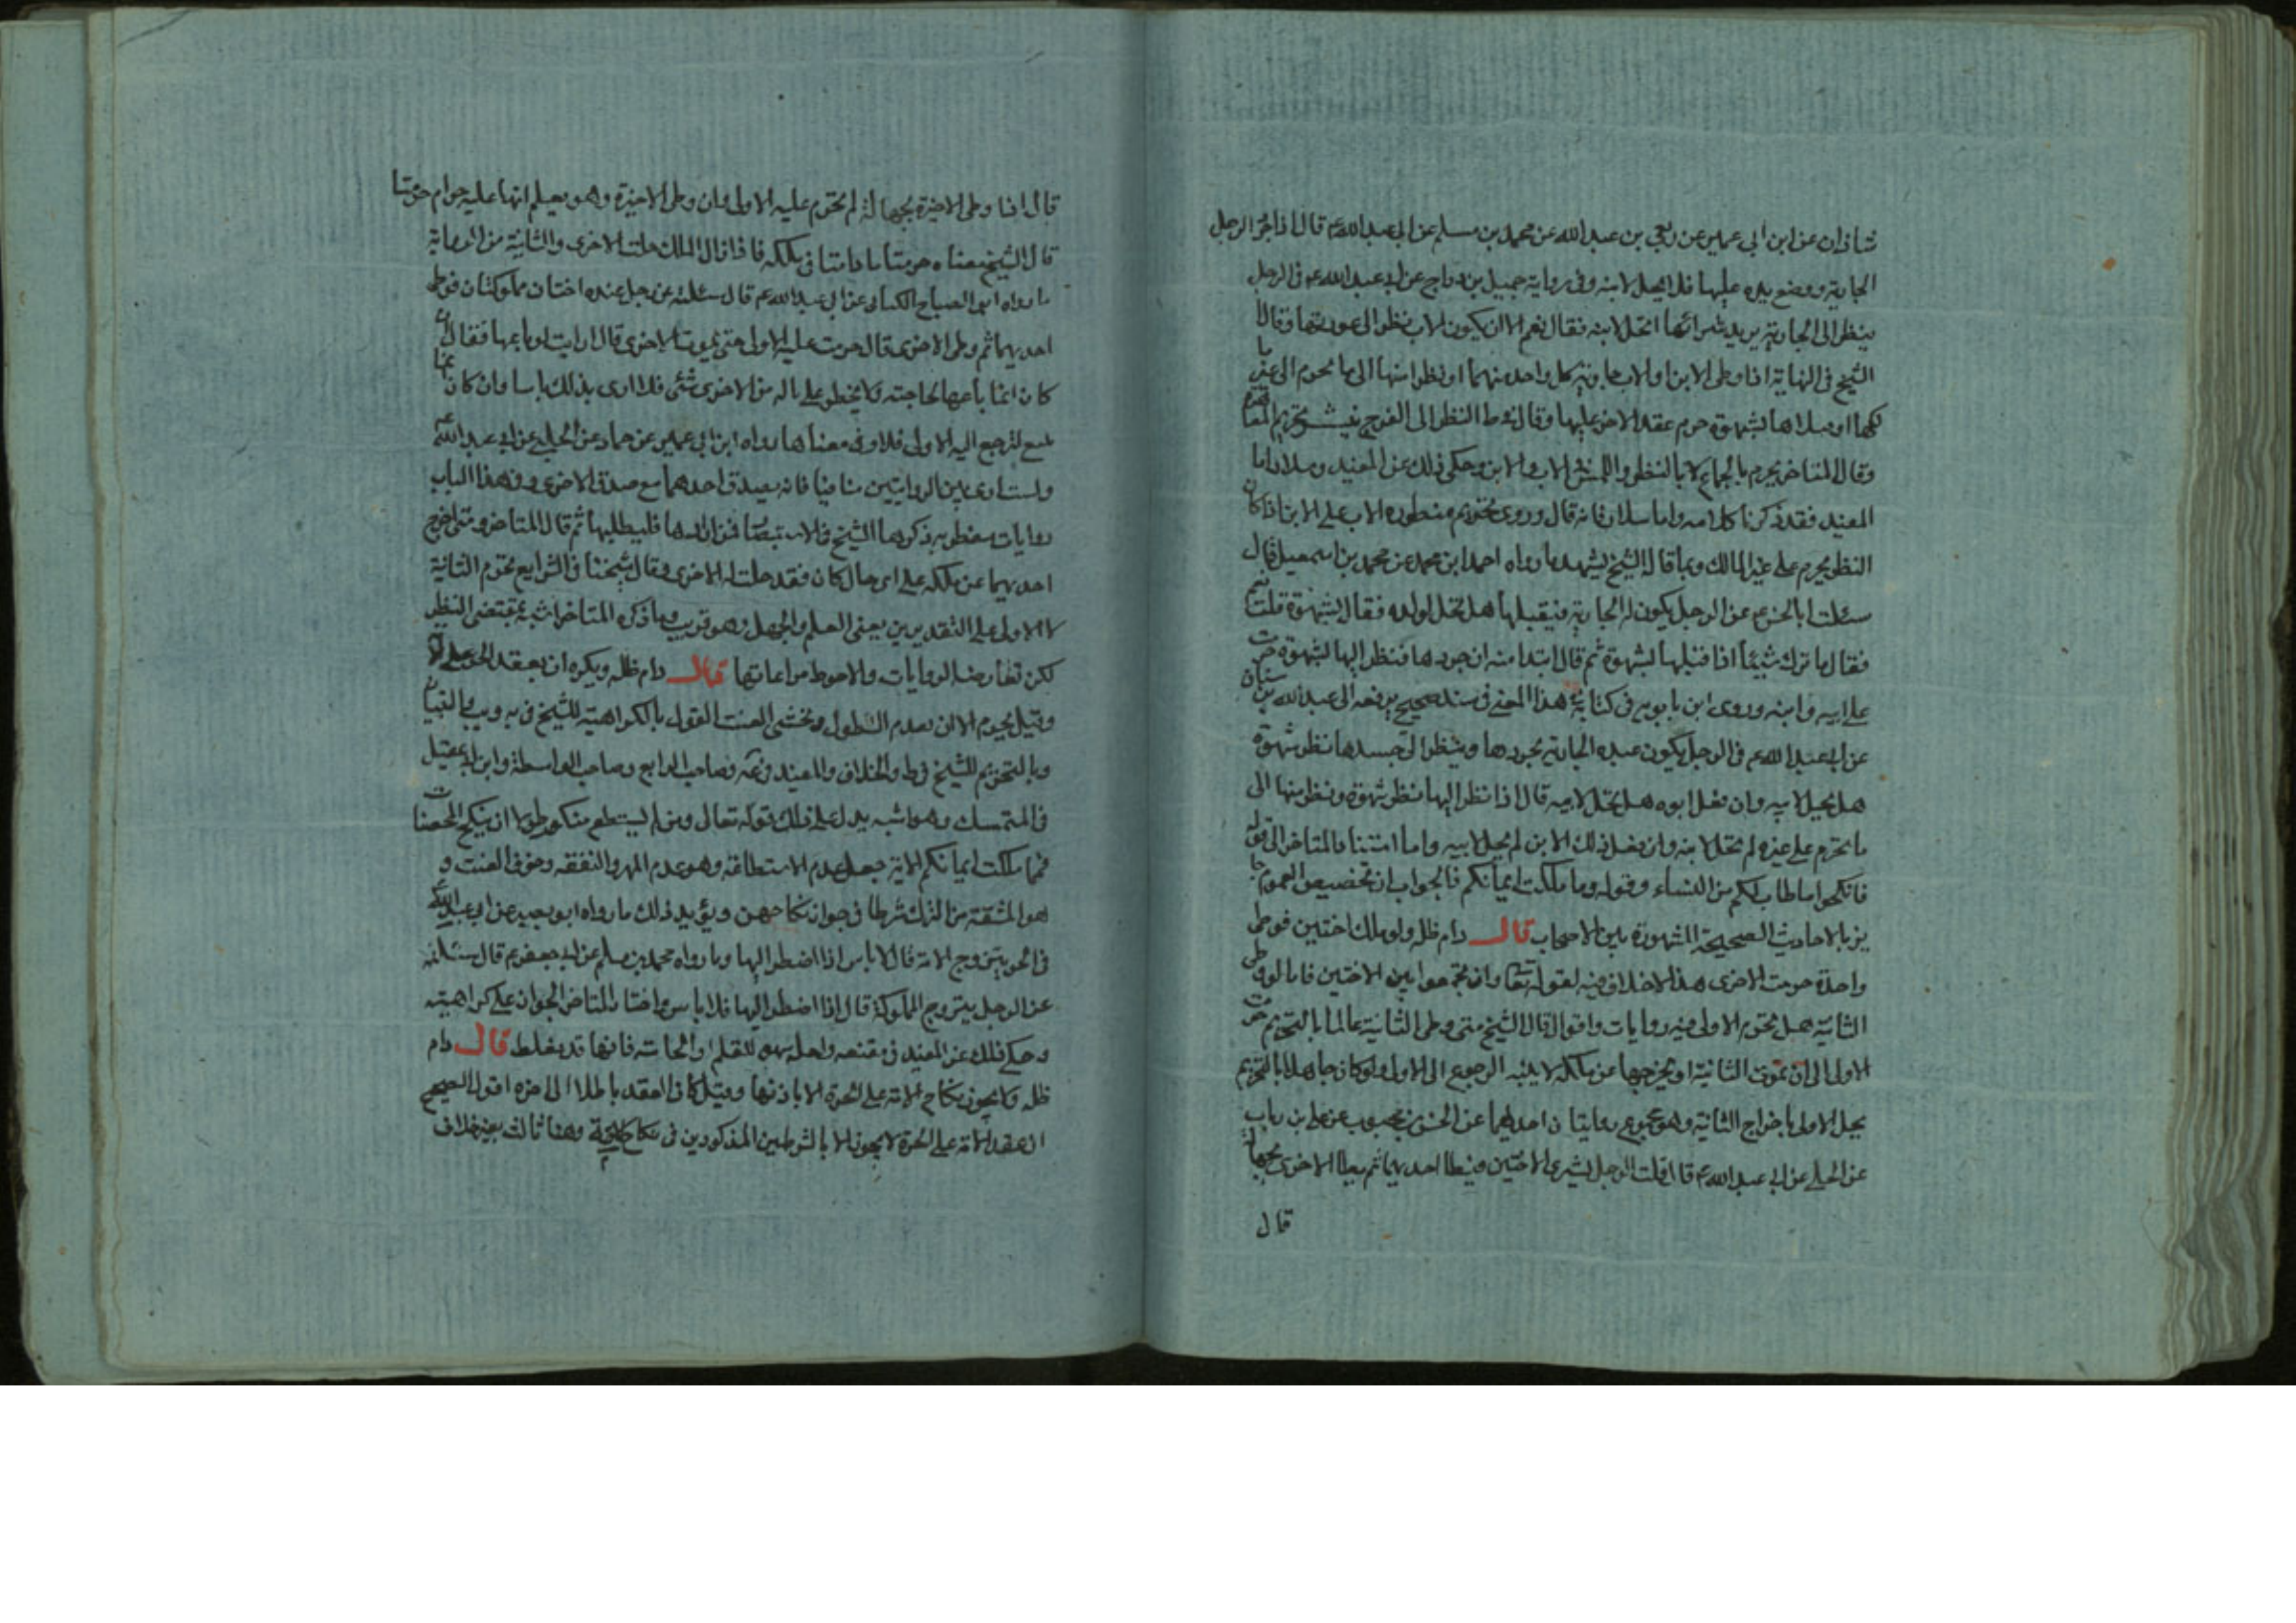 شاذان عن ابن ابي عمير عن ربعي بن عبد الله عن محمد بن مسلم عن ابي عبد الله ع قال اذا جرّد الرجل
الجارية ووضع يده عليها فلا يحل لابنه وفي رواية جميل بن دراج عن ابي عبد الله ع في الرجل
ينظر الى الجارية يريد شرائها اتحل لابنه فقال نعم الا ان يكون الاب نظر الى عورتها وقال
الشيخ في النهاية اذا وطى الابن او الاب جارية كل واحد منهما او نظر منها الى ما يحرم الى غير
لكها او بشهوة حرم عقد الاخر عليها وقال في ط النظر الى الفرج ينشر تحريم
وقال المتاخر يحرم بالجماع لا بالنظر واللمس الاب والابن وحكى ذلك عن المفيد وسلار اما
المفيد فقد ذكرنا كلامه واما سلار فانه قال وروى تحريم منظورة الاب على الابن اذا كان
النظر يحرم على غير المالك وبما قاله الشيخ يشهد ما رواه احمد ابن محمد عن محمد بن اسمعيل قال
سئلت ابا الحسن ع عن الرجل يكون له الجارية فيقبلها هل تحل لولده فقال بشهوة قلت نعم
فقال ما ترك شيئا اذا قبلها بشهوة ثم قال ابتدا منه ان جردها فنظر اليها بشهوة حرمت
على ابيه وابنه وروى ابن بابويه في كتابه هذا المعنى في سند صحيح يرفعه الى عبد الله بن سنان
عن ابي عبد الله ع في الرجل يكون عنده الجارية يجردها وينظر الى جسدها نظر شهوة
هل يحل لابيه وان فعل ابوه هل تحل لابنه قال اذا نظر اليها نظر شهوة ونظر منها الى
ما يحرم على غيره لم تحل لابنه وان فعل ذلك الابن لم يحل لابيه واما المتاخر الى قوله
فانكحوا ما طاب لكم من النساء وقوله وما ملكت ايمانكم فالجواب ان تخصيص العموم جا
يز بالاحاديث الصحيحة المشهورة بين الاصحاب قال دام ظله ولو ملك اختين فوطى
واحدة حرمت الاخرى هذا لا خلاف فيه لقوله تعا وان تجمعوا بين الاختين فاما لو وطى
الثانية هل تحرم الاولى فيه روايات واقوال قال الشيخ متى وطى الثانية عالما بالتحريم حرمت
الاولى الى ان تموت الثانية او يخرجها عن ملكه لا بنية الرجوع الى الاولى ولو كان جاهلا بالتحريم
يحل الاولى باخراج الثانية وهو مجموع روايتان احدهما عن الحسن بن محبوب عن علي بن رياب
عن الحلبي عن ابي عبد الله ع قال قلت الرجل يشترى الاختين فيطا احديهما ثم يطا الاخرى بجهالة
قال
قال اذا وطى الاخيرة بجهالة لم تحرم عليه الاولى وان وطى الاخيرة وهو يعلم انها عليه حرام حرمتا
قال الشيخ معناه حرمتا ما دامتا في ملكه فاذا زال الملك حلت الاخرى والثانية من الرواية
ما رواه ابو الصباح الكناني عن ابي عبد الله ع قال سئلته عن رجل عنده اختان مملوكتان فوطى
احديهما ثم وطى الاخرى قال حرمت عليه الاولى حتى تموت الاخرى قال ارايت لو باعها فقال ان
كان انما باعها لحاجته ولا يخطر على باله من الاخرى شئ فلا ارى بذلك باسا وان كان انما
يبيع لترجع اليه الاولى فلا وفي معناها رواه ابن ابي عمير عن حماد عن الحلبي عن ابي عبد الله ع
ولست ارى بين الروايتين فانه يصدق احدهما مع صدق الاخرى وفي هذا الباب
روايات ذكرها الشيخ في الاستبصار فمن ارادها فليطلبها ثم قال المتاخر ومتى اخرج
احديهما عن ملكه على اى حال كان فقد حلت له الاخرى وقال شيخنا في الشرايع تحرم الثانية
لا الاولى على التقديرين يعنى العلم والجهل وهو قريب وما ذكره المتاخر اشبه بمقتضى النظر
لكن تعارضه الروايات والاحوط مراعاتها قال دام ظله ويكره ان يعقد الحر على
وقيل يحرم الا ان يعدم الطول ويخشى العنت القول بالكراهية للشيخ في يه ويب والتبيان
وبالتحريم للشيخ في ط والخلاف والمفيد وصاحب الرابع وصاحب الواسطة وابن ابي عقيل
في المتمسك وهو اشبه يدل على ذلك قوله تعالى ومن لم يستطع منكم طولا ان ينكح المحصنات
فمما ملكت ايمانكم الاية جعل عدم الاستطاعة وهو عدم المهر والنفقه وخوف العنت و
هو المشقة من الترك شرطا في جواز نكاحهن ويؤيد ذلك ما رواه ابو بصير عن ابي عبد الله ع
في الحر يتزوج الامة قال لا باس اذا اضطر اليها وما رواه محمد بن مسلم عن ابي جعفر ع قال سئلته
عن الرجل يتزوج المملوكة قال اذا اضطر اليها فلا باس واختار المتاخر الجواز على كراهيته
وحكى ذلك عن المفيد في مقنعه ولعله سهو للقلم او الحاسة فانها قد يغلط قال دام
ظله ولا يجوز نكاح الامة على الحرة الا باذنها وقيل كان العقد باطلا الى اخره اقول الصحيح
ان عقد الامة على الحرة لا يجوز الا بالشرطين المذكورين في نكاح وهنا ثالث بغير خلاف